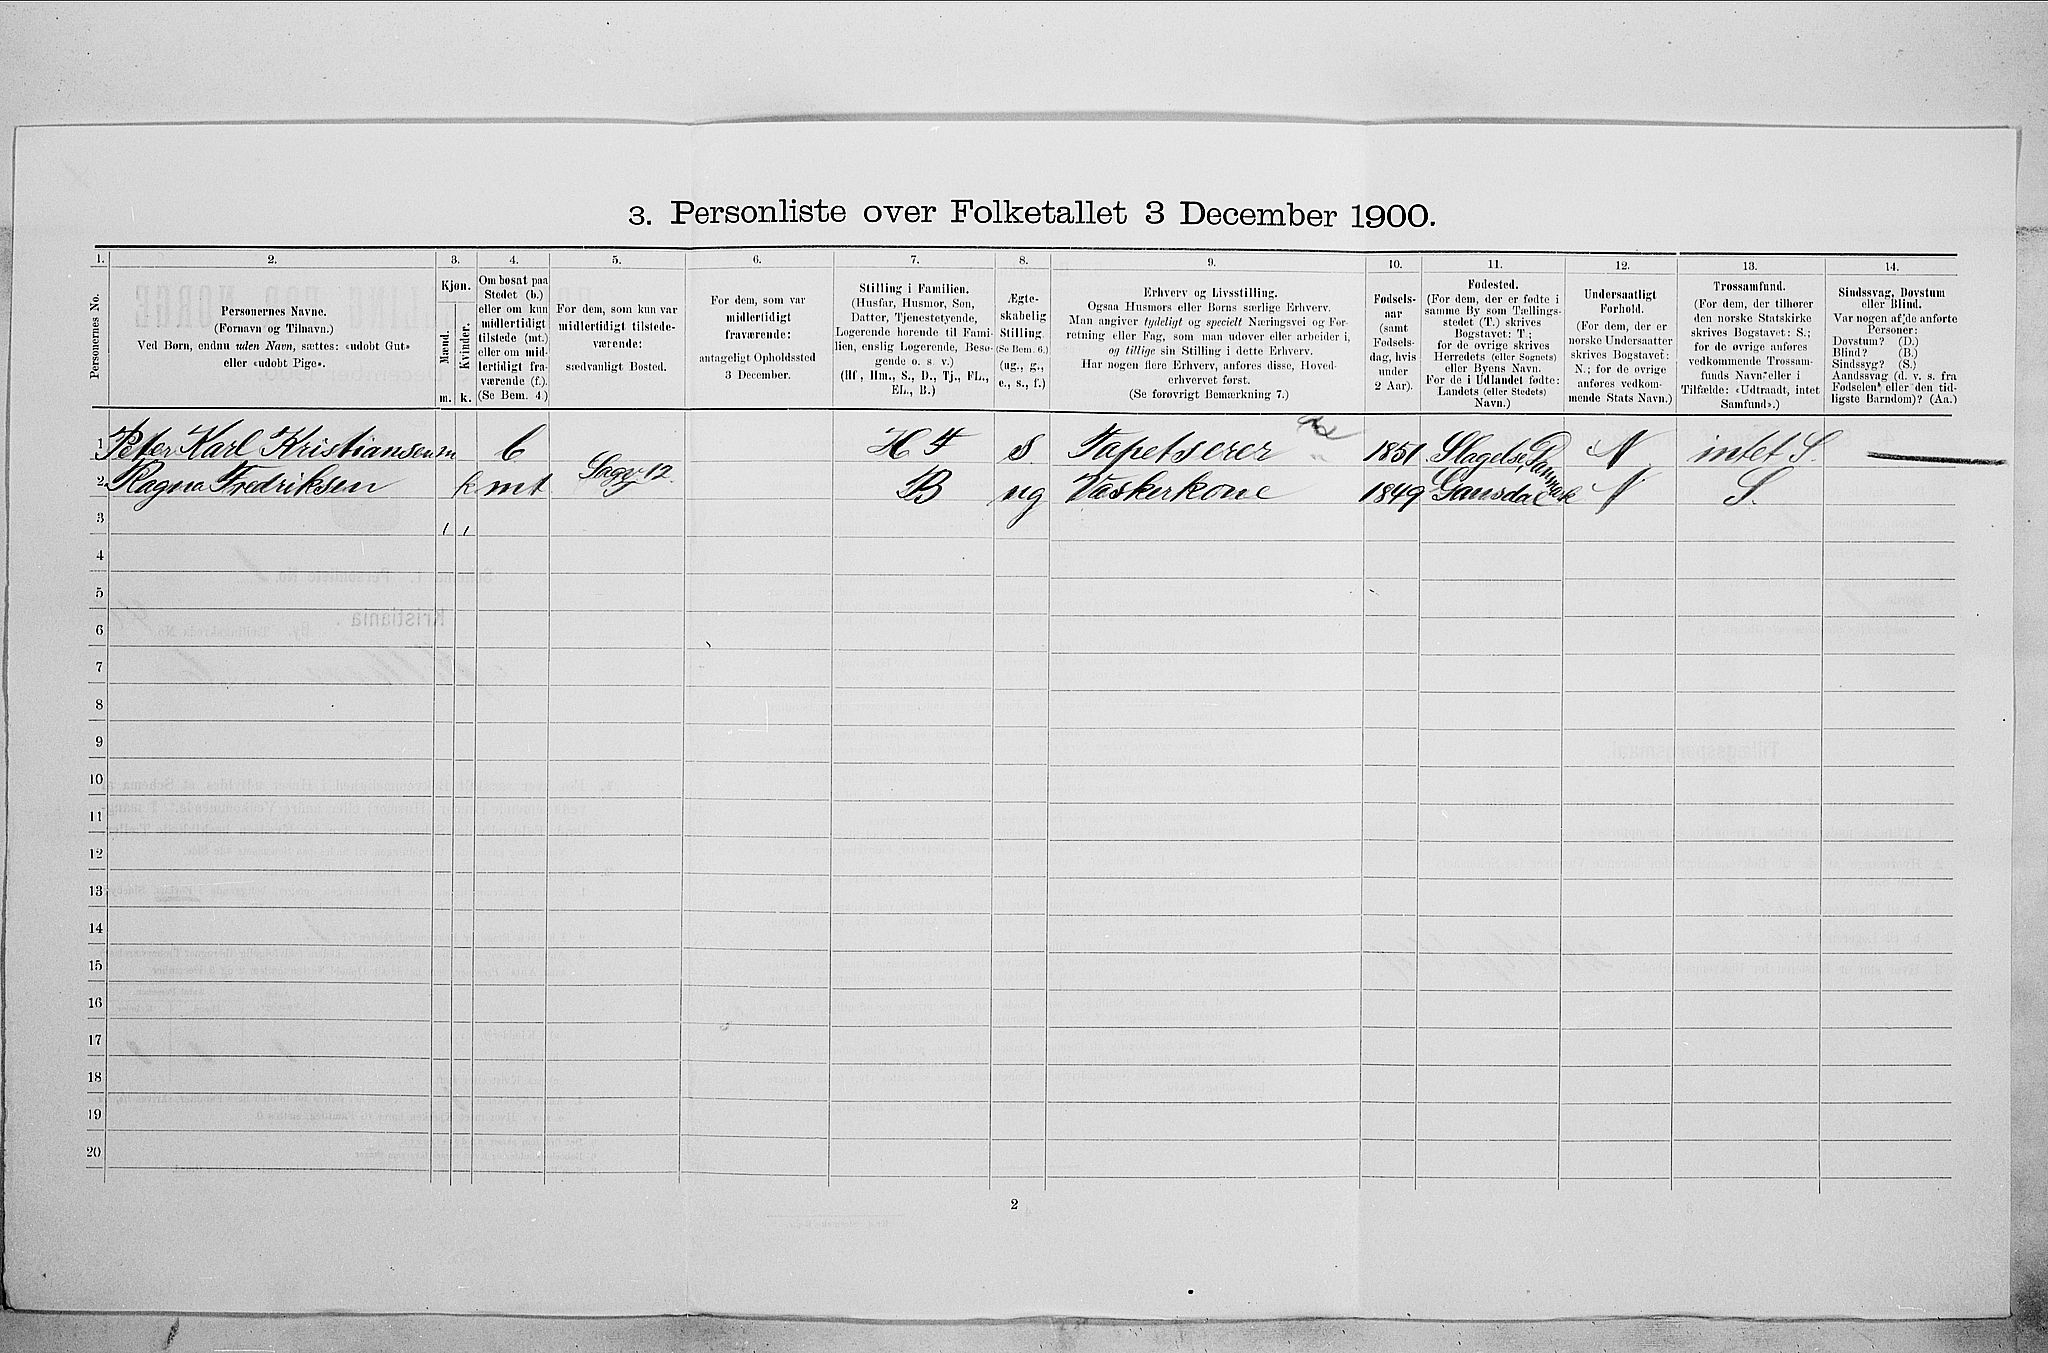 3. Personliste over Folketallet 3 December 1900.
1. 2. 3. 4. 5. 6. 7. 8. 9. 10. 11. 12. 13. 14.
Personernes No.
Personernes Navne.
(Fornavn og Tilnavn.)
Ved Børn, endnu uden Navn, sættes: «udøbt Gut»
eller «udøbt Pige».
Kjøn.
Mænd.
Kvinder.
m. k.
Om bosat paa
Stedet (b.)
eller om kun
midlertidigt
tilstede (mt.)
eller om mid-
lertidigt fra-
værende (f.).
(Se Bem. 4.)
For dem, som kun var
midlertidigt tilstede-
værende:
sædvanligt Bosted.
For dem, som var
midlertidigt
fraværende:
antageligt Opholdssted
3 December.
Stilling i Familien.
(Husfar, Husmor, Søn,
Datter, Tjenestetyende,
Logerende hørende til Fami-
lien, enslig Logerende, Besø-
gende o. s. v.)
(Hf, Hm., S., D., Tj., FL.,
EL., B.)
Ægte-
skabelig
Stilling.
(Se Bem. 6.)
(ug., g.,
e., s., f.)
Erhverv og Livsstilling.
Ogsaa Husmors eller Børns særlige Erhverv.
Man angiver tydeligt og specielt Næringsvei og For-
retning eller Fag, som man udøver eller arbeider i,
og tillige sin Stilling i dette Erhverv.
Har nogen flere Erhverv, anføres disse, Hoved-
erhvervet først.
(Se forøvrigt Bemærkning 7.)
Fødsels-
aar
(samt
Fødsels-
dag, hvis
under
2 Aar).
Fødested.
(For dem, der er fødte i
samme By som Tællings-
stedet (T.) skrives
Bogstavet: T.;
for de øvrige skrives
Herredets (eller Sognets)
eller Byens Navn.
For de i Udlandet fødte:
Landets (eller Stedets)
Navn.)
Undersaatligt
Forhold.
(For dem, der er
norske Undersaatter
skrives Bogstavet:
N.; for de øvrige
anføres vedkom-
mende Stats Navn.)
Trossamfund.
(For dem, der tilhører
den norske Statskirke
skrives Bogstavet: S.;
for de øvrige anføres
vedkommende Trossam-
funds Navn, eller i
Tilfælde: «Udtraadt, intet
Samfund».)
Sindssvag, Døvstum
eller Blind.
Var nogen af de anførte
Personer:
Døvstum? (D.)
Blind? (B.)
Sindssyg? (S.)
Aandssvag (d. v. s. fra
Fødselen eller den tid-
ligste Barndom)? (Aa.)
1 Peter Karl Kristiansen m b H F s. Tapetserer 1851 Slagelse, Danmark N intet S.
2 Ragna Fredriksen k mt Sagv 12. B ug Vaskerkone 1849 Gausdal N S.
3 1 1
4
5
6
7
8
9
10
11
12
13
14
15
16
17
18
19
20
2